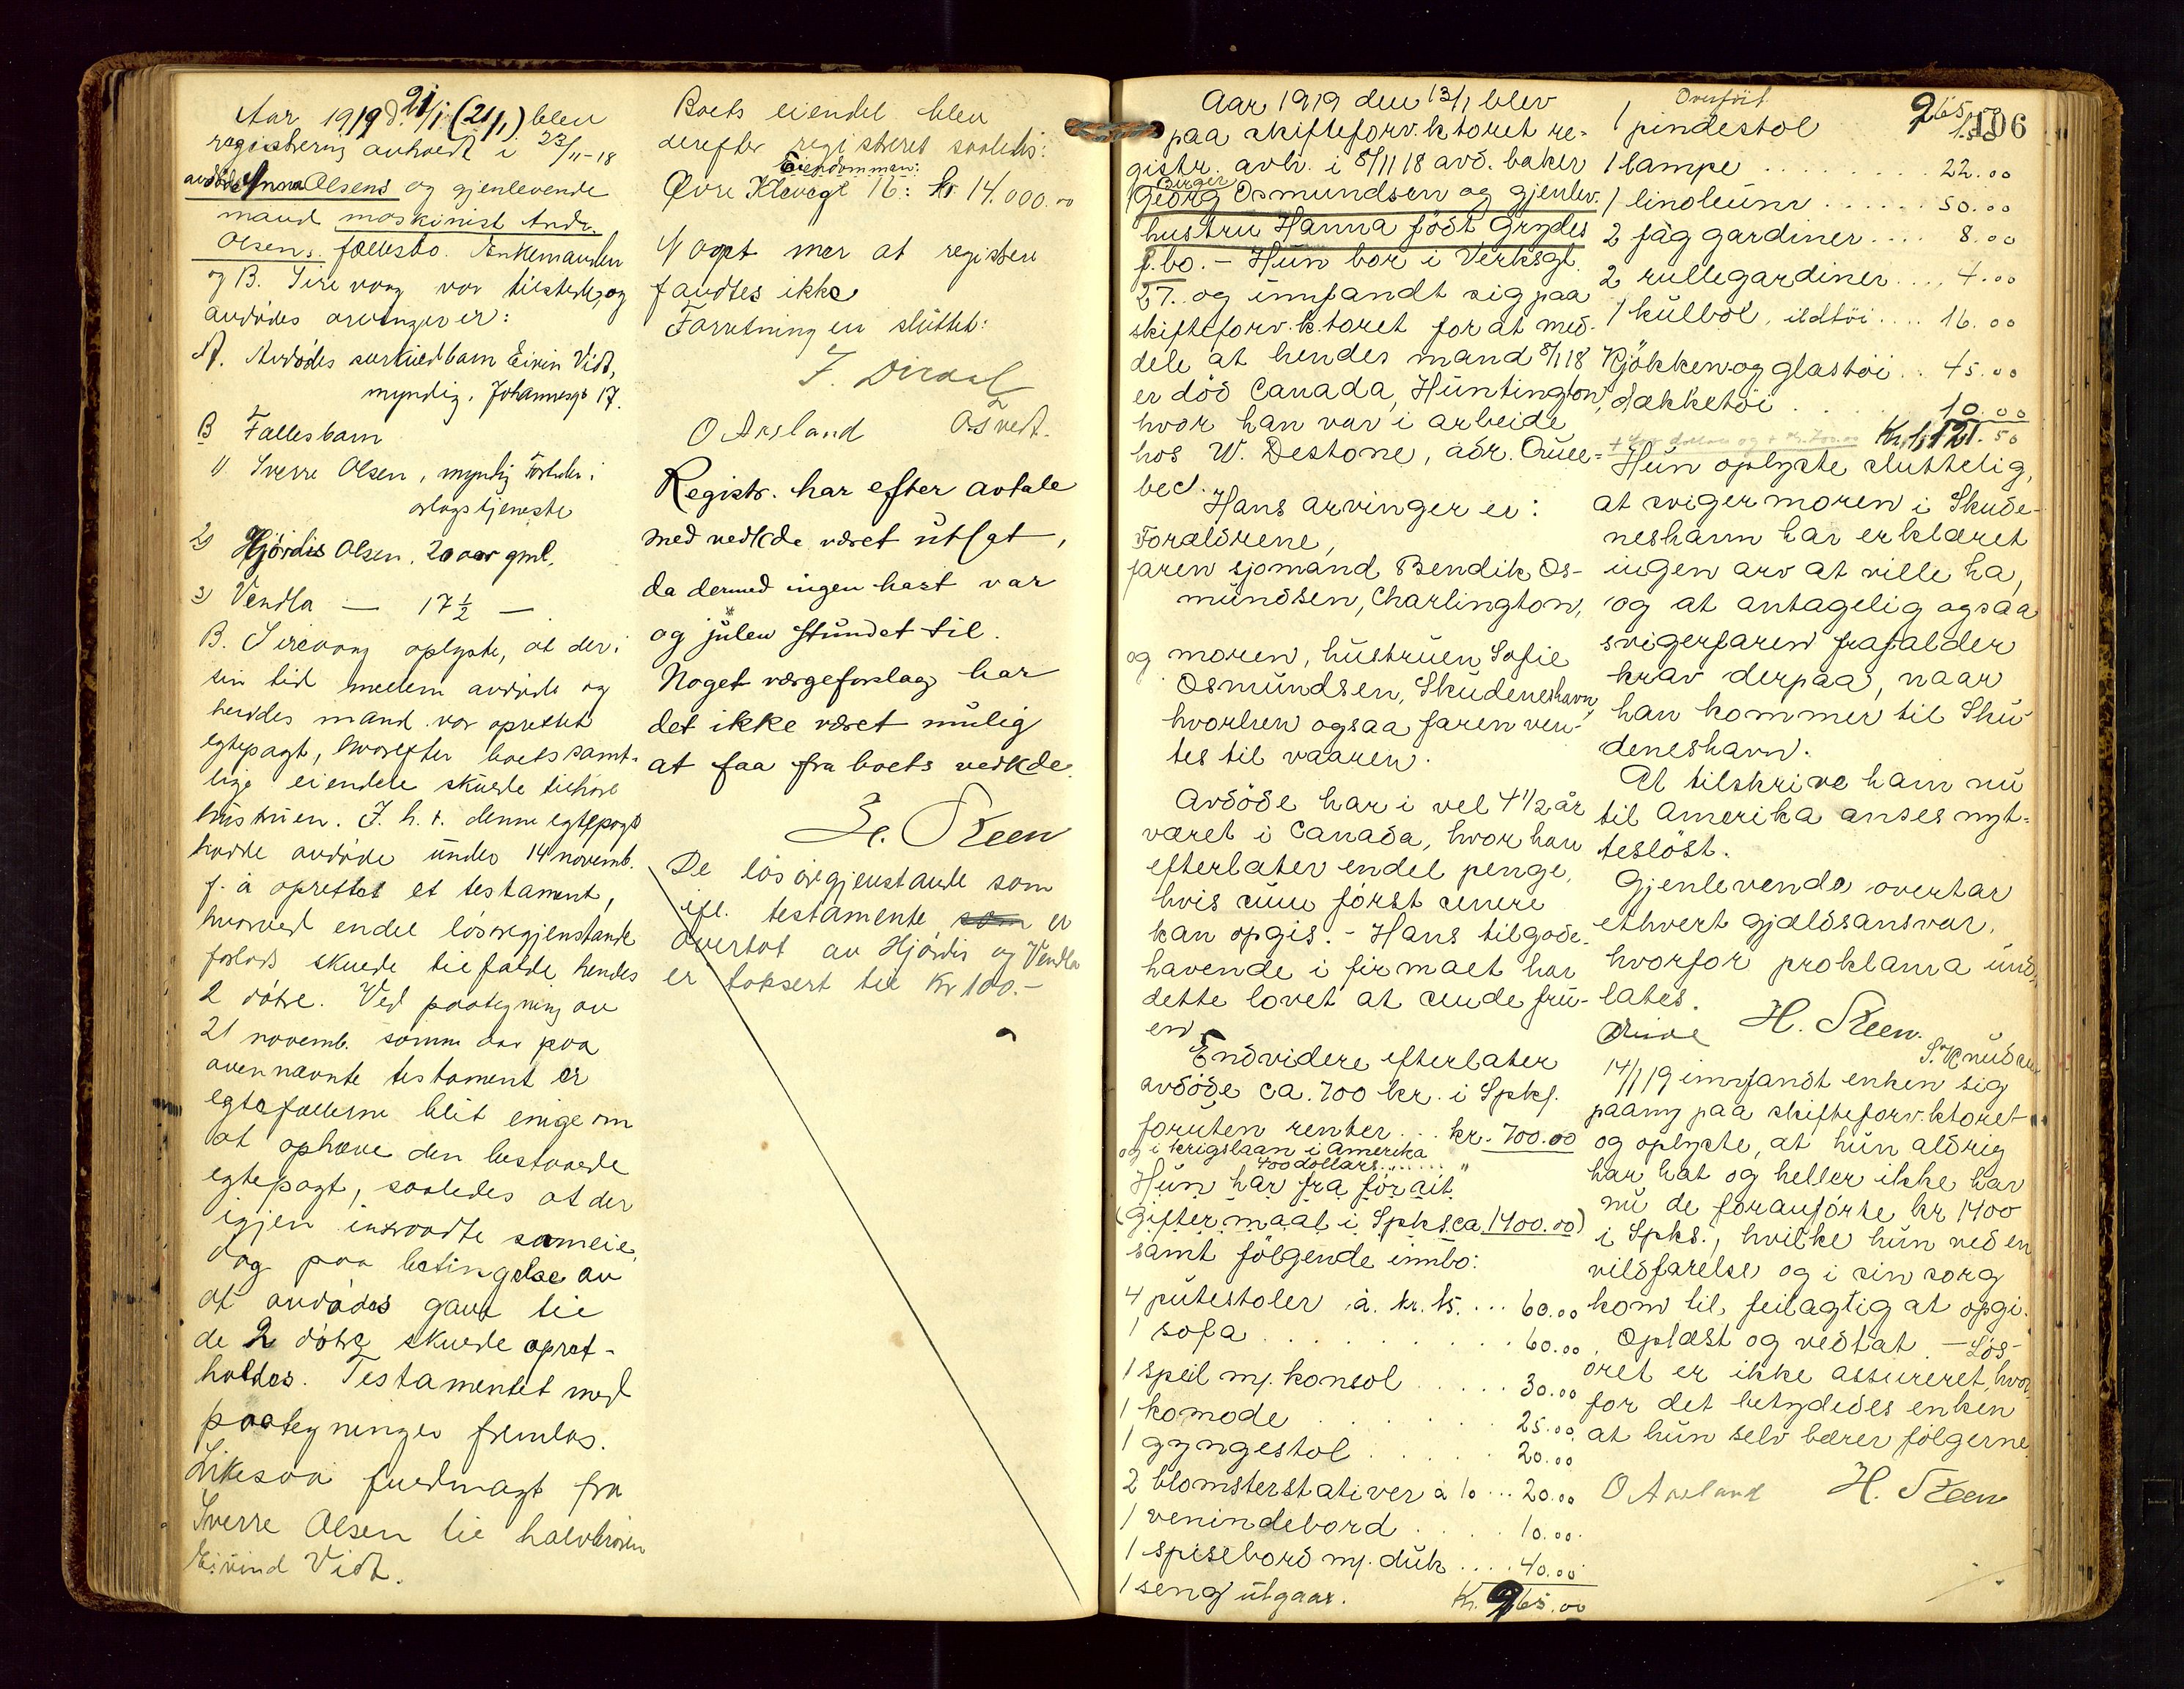 Aar 1919 d. 21/1 (21/1) blev
registrering avholdt i 23/11-18
avdøde Anna Olsens og gjenlevende
mand maskinist Andr.
Olsens fællesbo. Enkemanden
og B. Sirevaag var tilstede, og
avdødes arvinger er:
A. Avdødes særkuldbarn Eivin Vidt,
myndig, Johannesgt 17.
B Fællesbarn
1) Sverre Olsen, myndig, for tiden i
orlogstjeneste
2) Hjördis Olsen, 20 aar gml.
3) Vendla — 17½ —
B. Sirevaag oplyste, at der i
sin tid mellem avdøde og
hendes mand var oprettet
egtepagt, hvorefter boets samt-
lige eiendele skulde tilhøre
hustruen. I. h. t. denne egtepagt
hadde avdøde under 14 novemb.
f. å oprettet et testament,
hvorved endel løsøregjenstande
forlods skulde tilfalde hendes
2 døtre. Ved paategning av
21 novemb. samme aar paa
ovennævnte testament er
egtefællerne blit enige om
at ophæve den bestaaende
egtepagt, saaledes at der
igjen indtraadte sameie,
dog paa betingelse av
at avdødes gave til
de 2 døtre skulde opret-
holdes. Testamentet med
paategninger fremlas.
Likesaa fuldmagt fra
Sverre Olsen til halvbroren
Eivind Vidt.
Boets eiendel blev
derefter registreret saaledes:
Eiendommen:
Øvre Klevegt 16: kr 14.000.00
Noget mer at registrere
fandtes ikke
Forretningen sluttet:
O Aasland
Registr. har efter avtale
med vedkde været utsat,
da dermed ingen hast var
og julen stundet til.
Noget værgeforslag har
det ikke været mulig
at faa fra boets vedkde.
H. Steen
De løsøregjenstande som
ifl. testamente som er
overtat av Hjördis og Vendla
er taksert til Kr 100.-
Aar 1919 den 13/1 blev
paa skifteforv.ktoret re-
gistr. avh. i 8/11 18 avd. baker
Georg Berger Osmundsen og gjenlev.
hustru Hanna född Grydes
f.bo. - Hun bor i Verksgt.
27. og innfandt sig paa
skifteforv.k.toret for at med-
dele at hendes mand 8/11 18
er död Canada, Huntington,
hvor han var i arbeide
hos W. Destone, adr. Quee-
bec.
Hans arvinger er:
Forældrene,
faren sjömand Bendik Os-
mundsen, Charlington,
og moren, hustruen Sofie
Osmundsen, Skudeneshavn,
hvorhen ogsaa faren ven-
tes til vaaren.
Avdöde har i vel 4 1/2 år
været i Canada, hvor han
efterlater endel penge,
hvis sum först senere
kan opgis. - Hans tilgode-
havende i firmaet har
dette lovet at sende fru-
en.
Endvidere efterlater
avdöde ca. 700 kr. i Spks.
foruten renter ... kr. 700.00
og i krigslaan i Amerika
400 dollars ...... "
Hun har fra för ait
(giftermaal i Spks ca 1400.00)
samt fölgende innbo:
4 putestoler à. kr. 15. ... 60.00
1 sofa . . . . . . 60.00
1 speil m. konsol . . . . . 30.00
1 komode . . . . . 25.00
1 gyngestol . . . . . 20.00
2 blomsterstativer à 10 ... 20.00
1 venindebord . . . . . 10.00
1 spisebord m. duk .... 40.00
1 seng utgaar. Kr. 965.00
106
Overfört 965.00
1 pindestol 1.50
1 lampe . . . . . . . . 22.00
1 linoleum . . . . . . 50.00
2 fag gardiner .... 8.00
2 rullegardiner .... 4.00
1 kulboks, ildtöi .... 16.00
Kjökken og glastöi .. 45.00
dækketöi . . . . . 10.00
+ 400 dollars og + kr. 700.00 Kr. 1,121.50
Hun oplyste sluttelig,
at svigermoren i Skude-
neshavn har erklæret
ingen arv at ville ha,
og at antagelig ogsaa
svigerfaren frafalder
krav derpaa, naar
han kommer til Sku-
deneshavn.
At tilskrive ham nu
til Amerika anses nyt-
teslöst.
Gjenlevende overtar
ethvert gjældsansvar,
hvorfor proklama und-
lates.
H. Steen.
S. Knudsen
14/1 19 innfandt enken sig
paany paa skifteforv.ktoret
og oplyste, at hun aldrig
har hat og heller ikke har
nu de foranförte kr 1400
i Spks., hvilke hun ved en
vildfarelse og i sin sorg
kom til feilagtig at opgi.
Oplæst og vedtat. — Lös-
öret er ikke assureret, hvor-
for det betydedes enken
at hun selv bærer fölgerne
O Aasland H. Steen